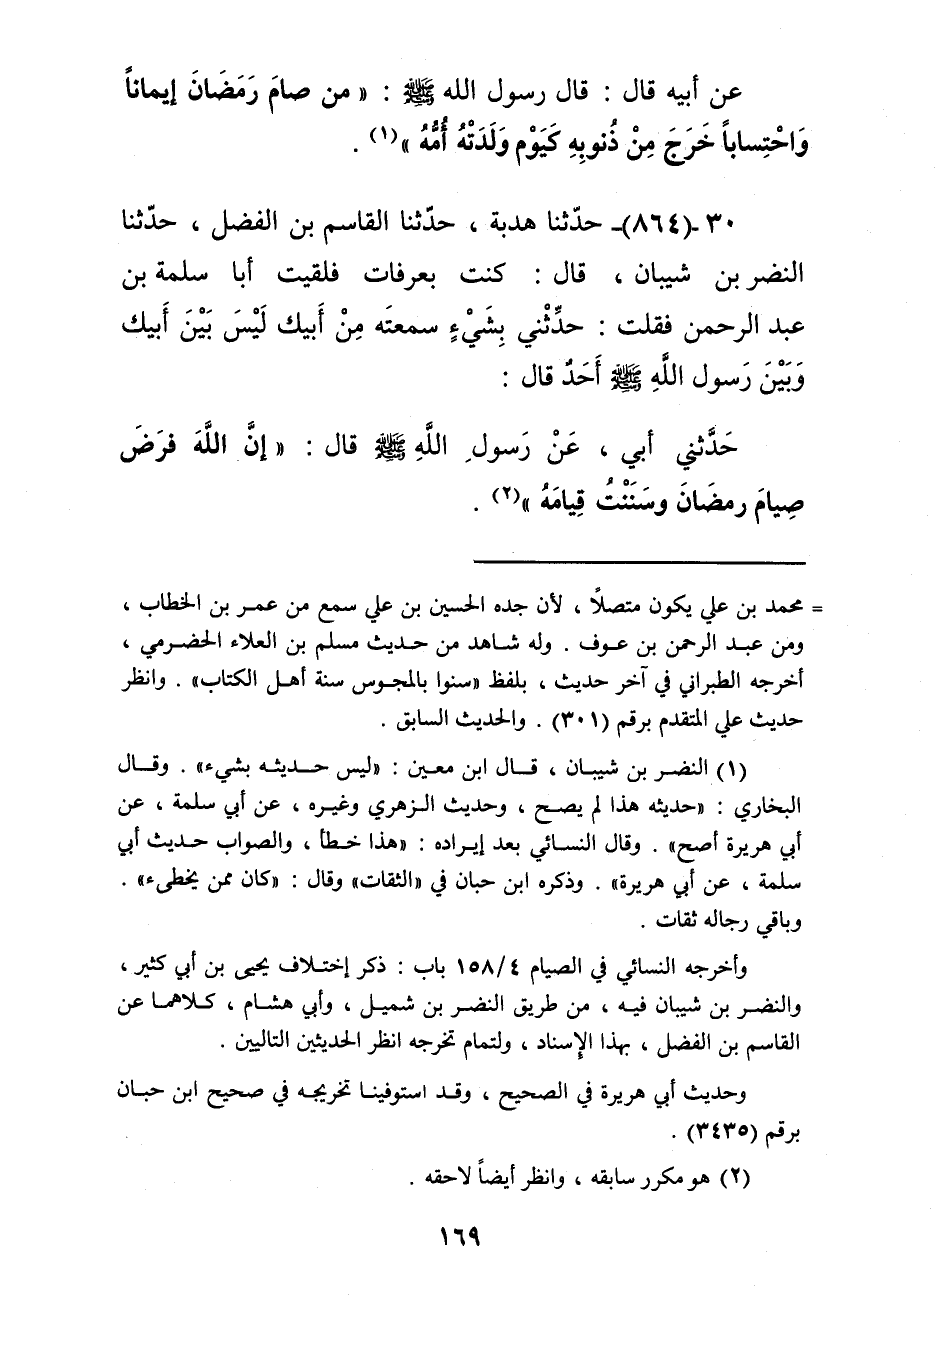 عن أبيه قال : قال رسول الله ﷺ : « من صامَ رَمَضَانَ إيماناً
وَاحْتِساباً خَرَجَ مِنْ ذُنوبِهِ كَيَوْمِ وَلَدَتْهُ أُمُّهُ »(١) .
٣٠ ـ(٨٦٤)ـ حدّثنا هدبة ، حدّثنا القاسم بن الفضل ، حدّثنا
النضر بن شيبان ، قال : كنت بعرفات فلقيت أبا سلمة بن
عبد الرحمن فقلت : حدِّثْني بِشَيْءٍ سمعتَه مِنْ أَبيك لَيْسَ بَيْنَ أَبيك
وَبَيْنَ رَسول اللَّهِ ﷺ أَحَدٌ قال :
حَدَّثني أبي ، عَنْ رَسولِ اللَّهِ ﷺ قال : « إنَّ اللَّهَ فرَضَ
صِيامَ رمضَانَ وسَنَنْتُ قِيامَهُ »(٢) .
= محمد بن علي يكون متصلاً ، لأن جده الحسين بن علي سمع من عمر بن الخطاب ،
ومن عبد الرحمن بن عوف . وله شاهد من حديث مسلم بن العلاء الحضرمي ،
أخرجه الطبراني في آخر حديث ، بلفظ «سنوا بالمجوس سنة أهل الكتاب» . وانظر
حديث علي المتقدم برقم (٣٠١) . والحديث السابق .
(١) النضر بن شيبان ، قال ابن معين : «ليس حديثه بشيء» . وقال
البخاري : «حديثه هذا لم يصح ، وحديث الزهري وغيره ، عن أبي سلمة ، عن
أبي هريرة أصح» . وقال النسائي بعد إيراده : «هذا خطأ ، والصواب حديث أبي
سلمة ، عن أبي هريرة» . وذكره ابن حبان في «الثقات» وقال : «كان ممن يخطىء» .
وباقي رجاله ثقات .
وأخرجه النسائي في الصيام ١٥٨/٤ باب : ذكر إختلاف يحيى بن أبي كثير ،
والنضر بن شيبان فيه ، من طريق النضر بن شميل ، وأبي هشام ، كلاهما عن
القاسم بن الفضل ، بهذا الإسناد ، ولتمام تخرجه انظر الحديثين التاليين .
وحديث أبي هريرة في الصحيح ، وقد استوفينا تخريجه في صحيح ابن حبان
برقم (٣٤٣٥) .
(٢) هو مكرر سابقه ، وانظر أيضاً لاحقه .
١٦٩